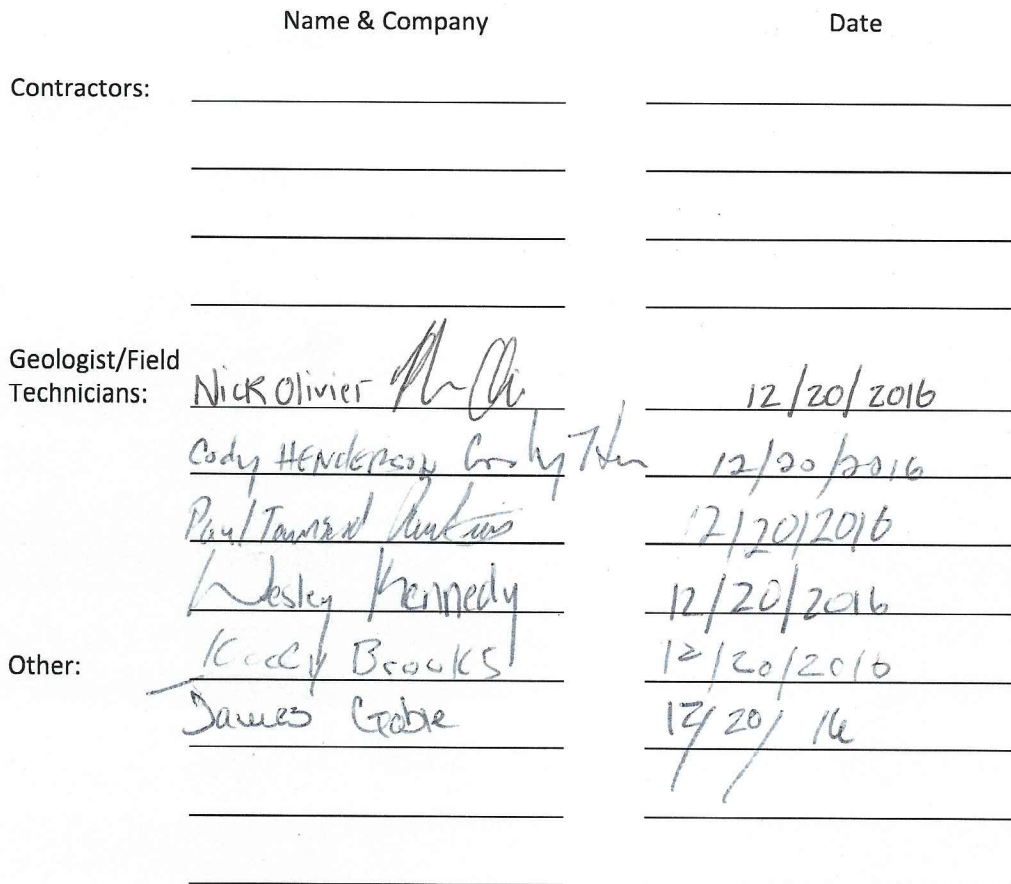 Name & Company Date
Contractors:
Geologist/Field
Technicians: Nick Olivier 12/20/2016
Cody HENDERSON 12/20/2016
Paul Townsend 12/20/2016
Wesley Kennedy 12/20/2016
Other: Brooks 12/20/2016
James 12/20/16